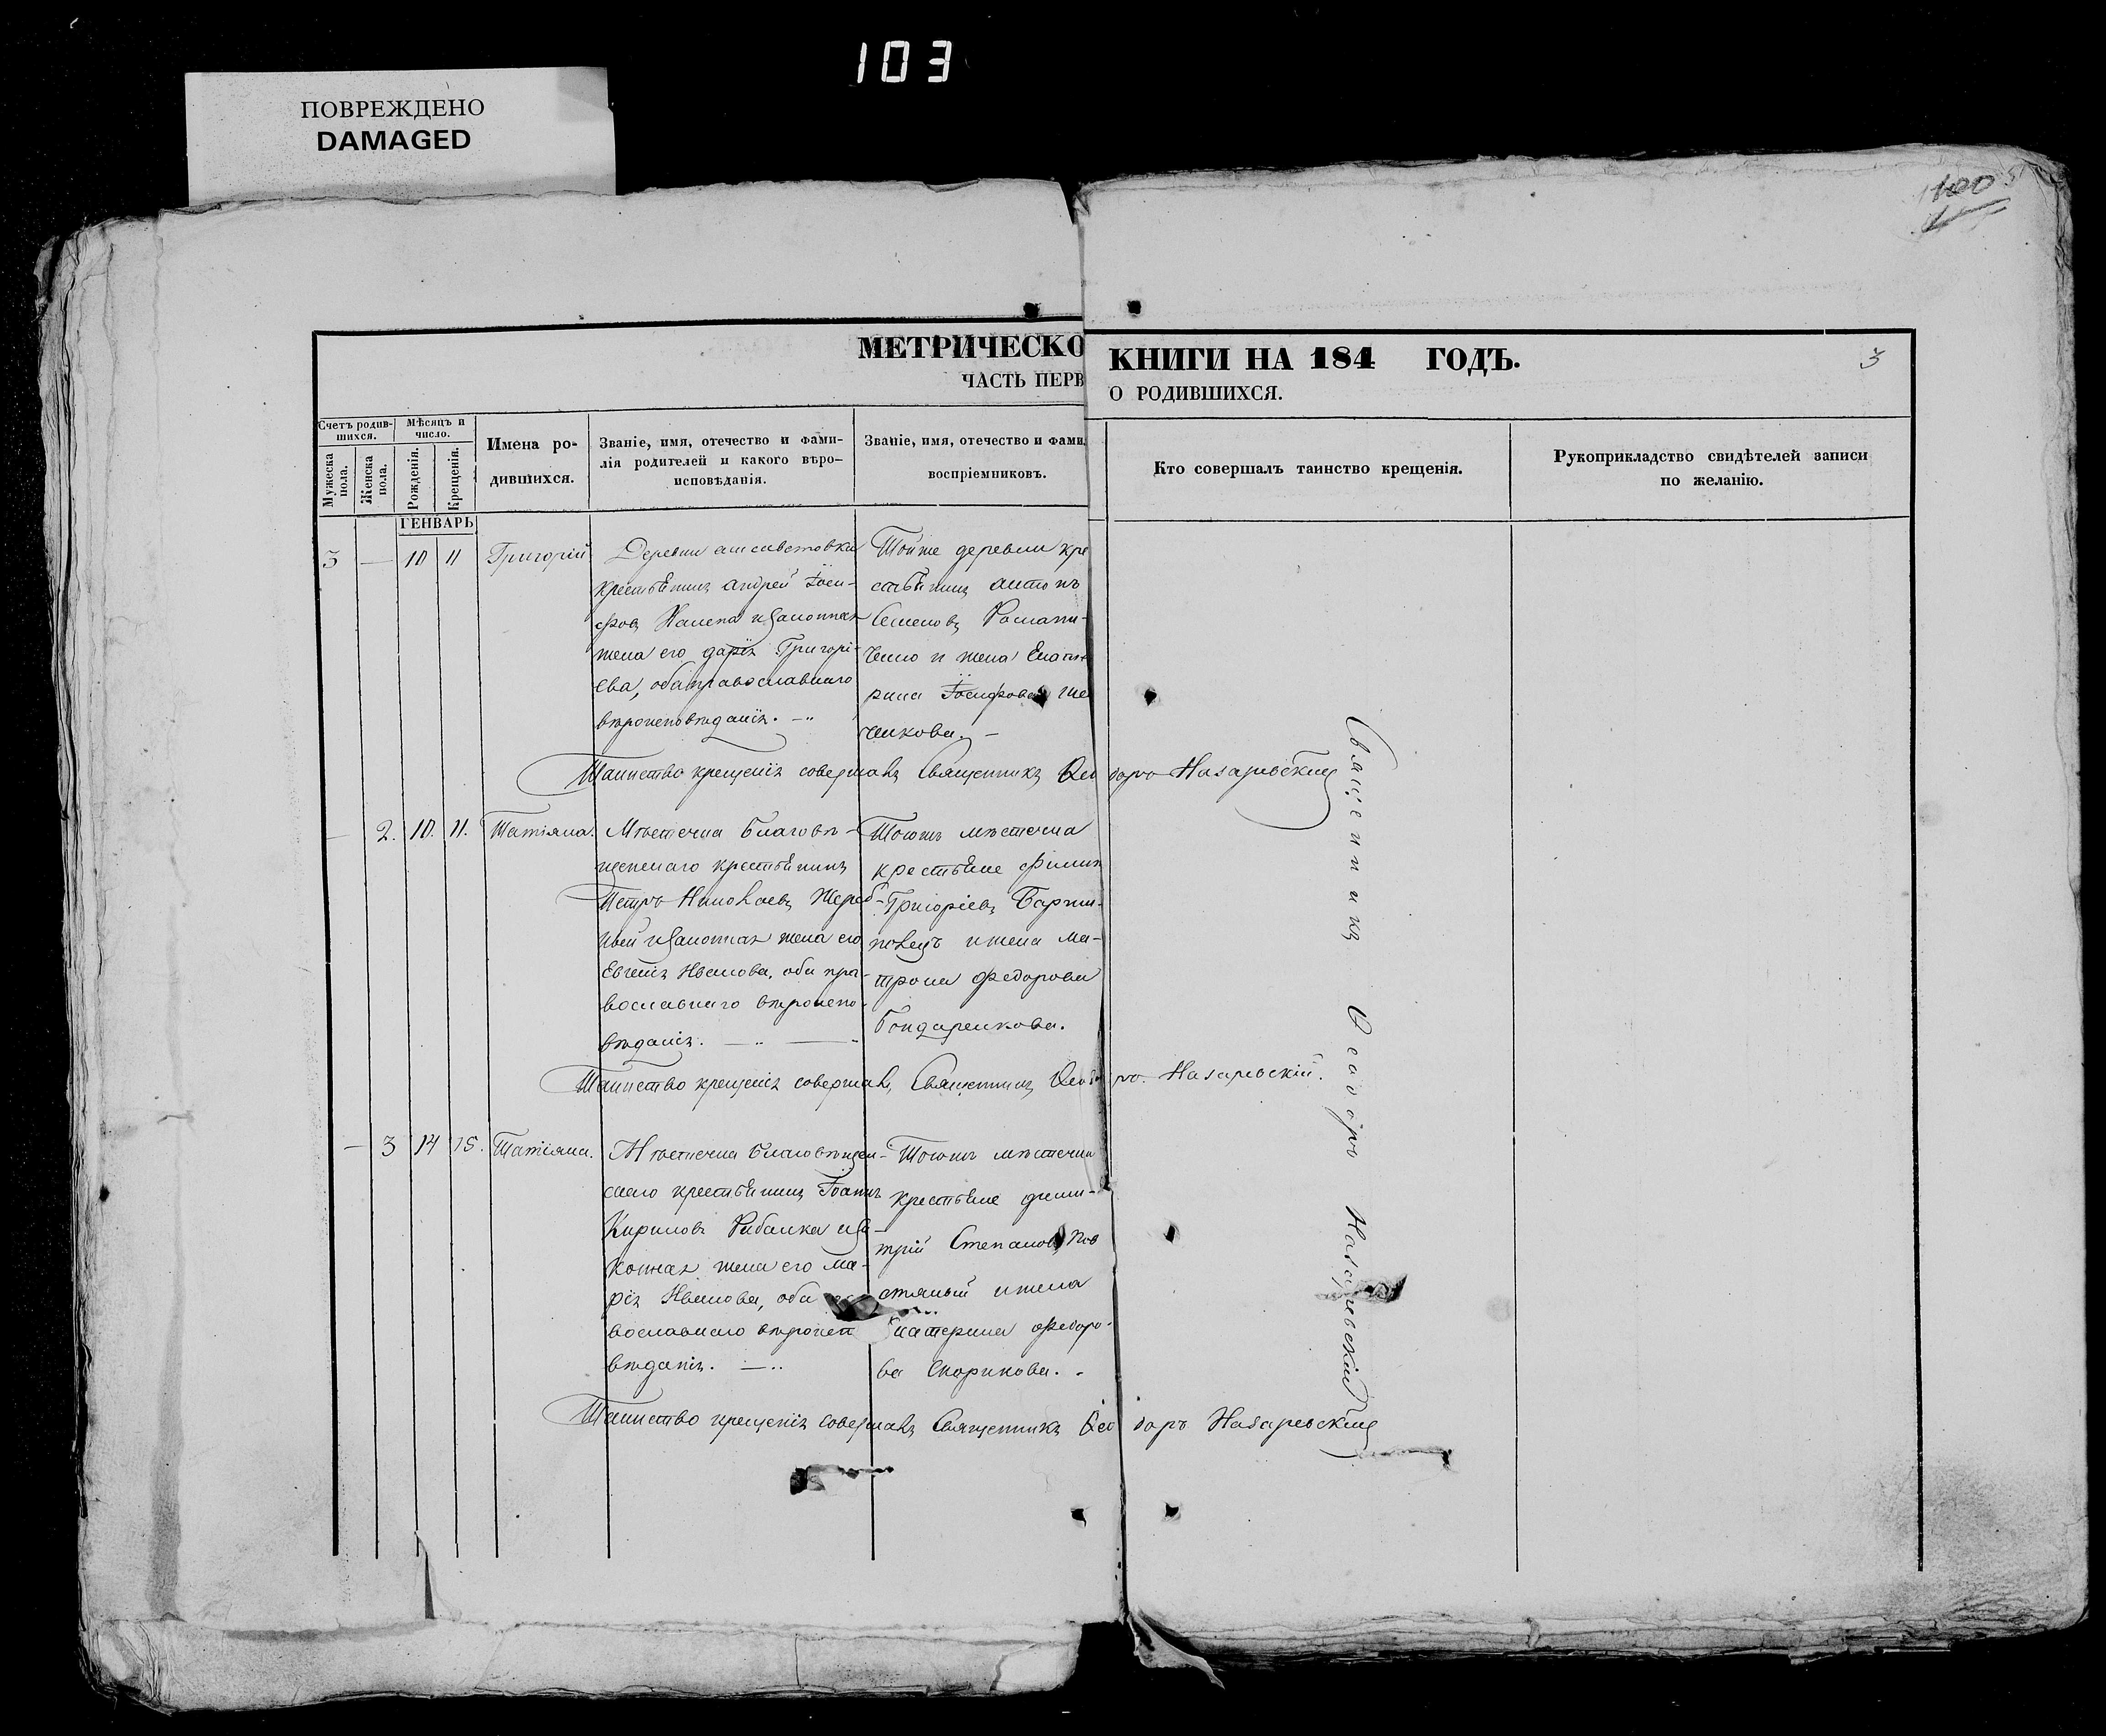 103
ПОВРЕЖДЕНО
DAMAGED
100
МЕТРИЧЕСКО КНИГИ НА 184 ГОДЪ.
3
ЧАСТЬ ПЕРВ О РОДИВШИХСЯ.
Счетъ родив-
шихся.
Мужеска
пола.
Женска
пола.
Мѣсяцъ и
число.
Рожденія.
Крещенія.
Имена ро-
дившихся.
Званіе, имя, отечество и фами-
лія родителей и какого вѣро-
исповѣданія.
Званіе, имя, отечество и фами
воспріемниковъ.
Кто совершалъ таинство крещенія.
Рукоприкладство свидѣтелей записи
по желанію.
ГЕНВАРЬ
3 — 10 11 Григорій
Деревни
крестьянинъ Андрей Іоси-
фовъ и законная
жена его Дарія Григорі-
ева, оба православнаго
вѣроисповѣданія. —
Тойже деревни кре
стьянинъ Антонъ
Семеновъ Романи-
ченко и жена Екате
рина Іосифова Ше
ченкова. —
Таинство крещенія совершалъ Священникъ Ѳеодоръ Назаревскій
— 2. 10. 11. Татіяна.
Мѣстечка Благовѣ-
щенскаго крестьянинъ
Петръ Николаевъ Жереб-
и законная жена его
Евгенія Иванова, оба пра-
вославнаго вѣроиспо-
вѣданія. —
Тогожъ мѣстечка
крестьяне Филип
Григоріевъ
и жена Ма-
трона Федорова
Бондаренкова.
Таинство крещенія совершалъ Священникъ Ѳеодоръ Назаревскій.
— 3 14 15. Татіяна.
Мѣстечка Благовѣщен-
скаго крестьянинъ Іоаннъ
Кириловъ Рибалка и за-
конная жена его Ма-
рія Иванова, оба
вославнаго вѣроисп
вѣданія. —
Тогожъ мѣстечка
крестьяне Дими-
трій Степановъ Пов
стяный и жена
Екатерина Федоро-
ва Скорикова. -
Таинство крещенія совершалъ Священникъ Ѳеодоръ Назаревскій
Священникъ Ѳеодоръ Назаревскій